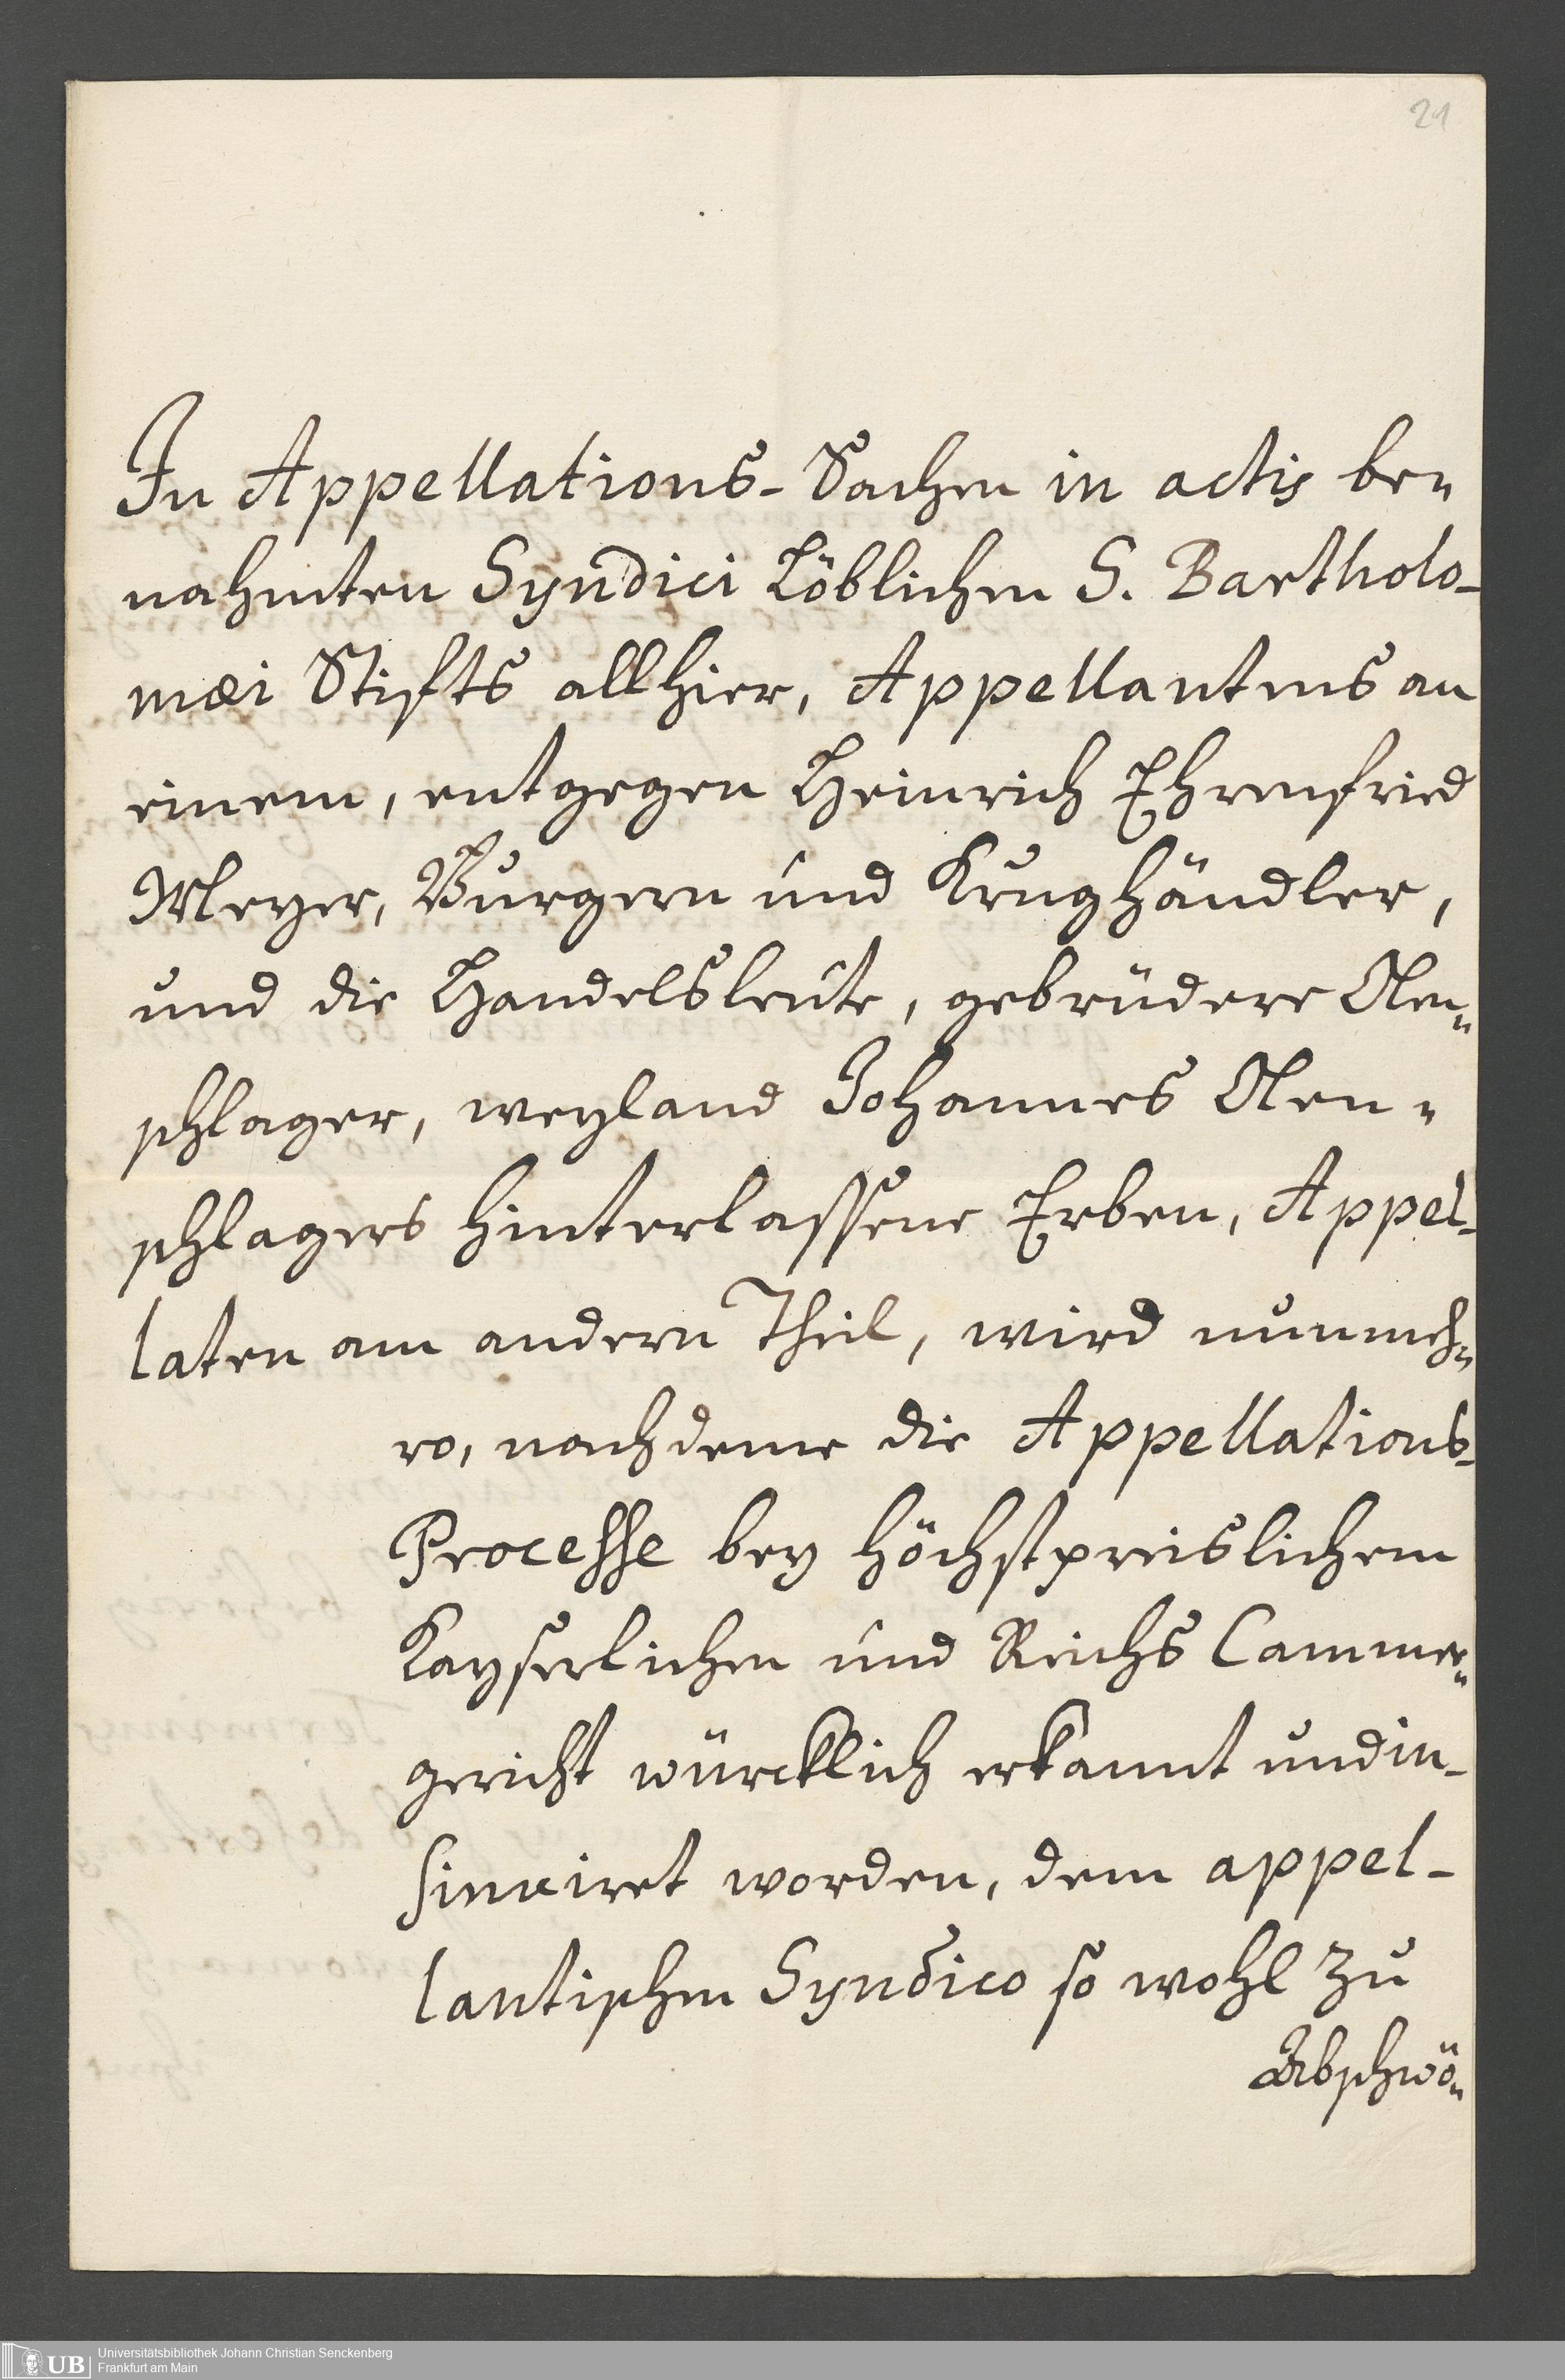 21
In Appellations-Sachen in actis be„
nahmten Syndici Löblichen S. Bartholo-
mæi Stifts allhier, Appellantens an
einem, entgegen Heinrich Ehrenfried
Meyer, Burgern und Krughändler,
und die Handelsleute, gebrüdere Olen„
schlager, weyland Johannes Olen„
schlagers hinterlassene Erben, Appel-
laten am andern Theil, wird nunmeh„
ro, nachdeme die Appellations-
Processe bey höchstpreislichem
Kayserlichen und Reichs Cammer„
gericht würcklich erkannt und in-
sinuiret worden, dem appel-
lantischen Syndico so wohl zu
Abschwö„
UB
Universitätsbibliothek Johann Christian Senckenberg
Frankfurt am Main